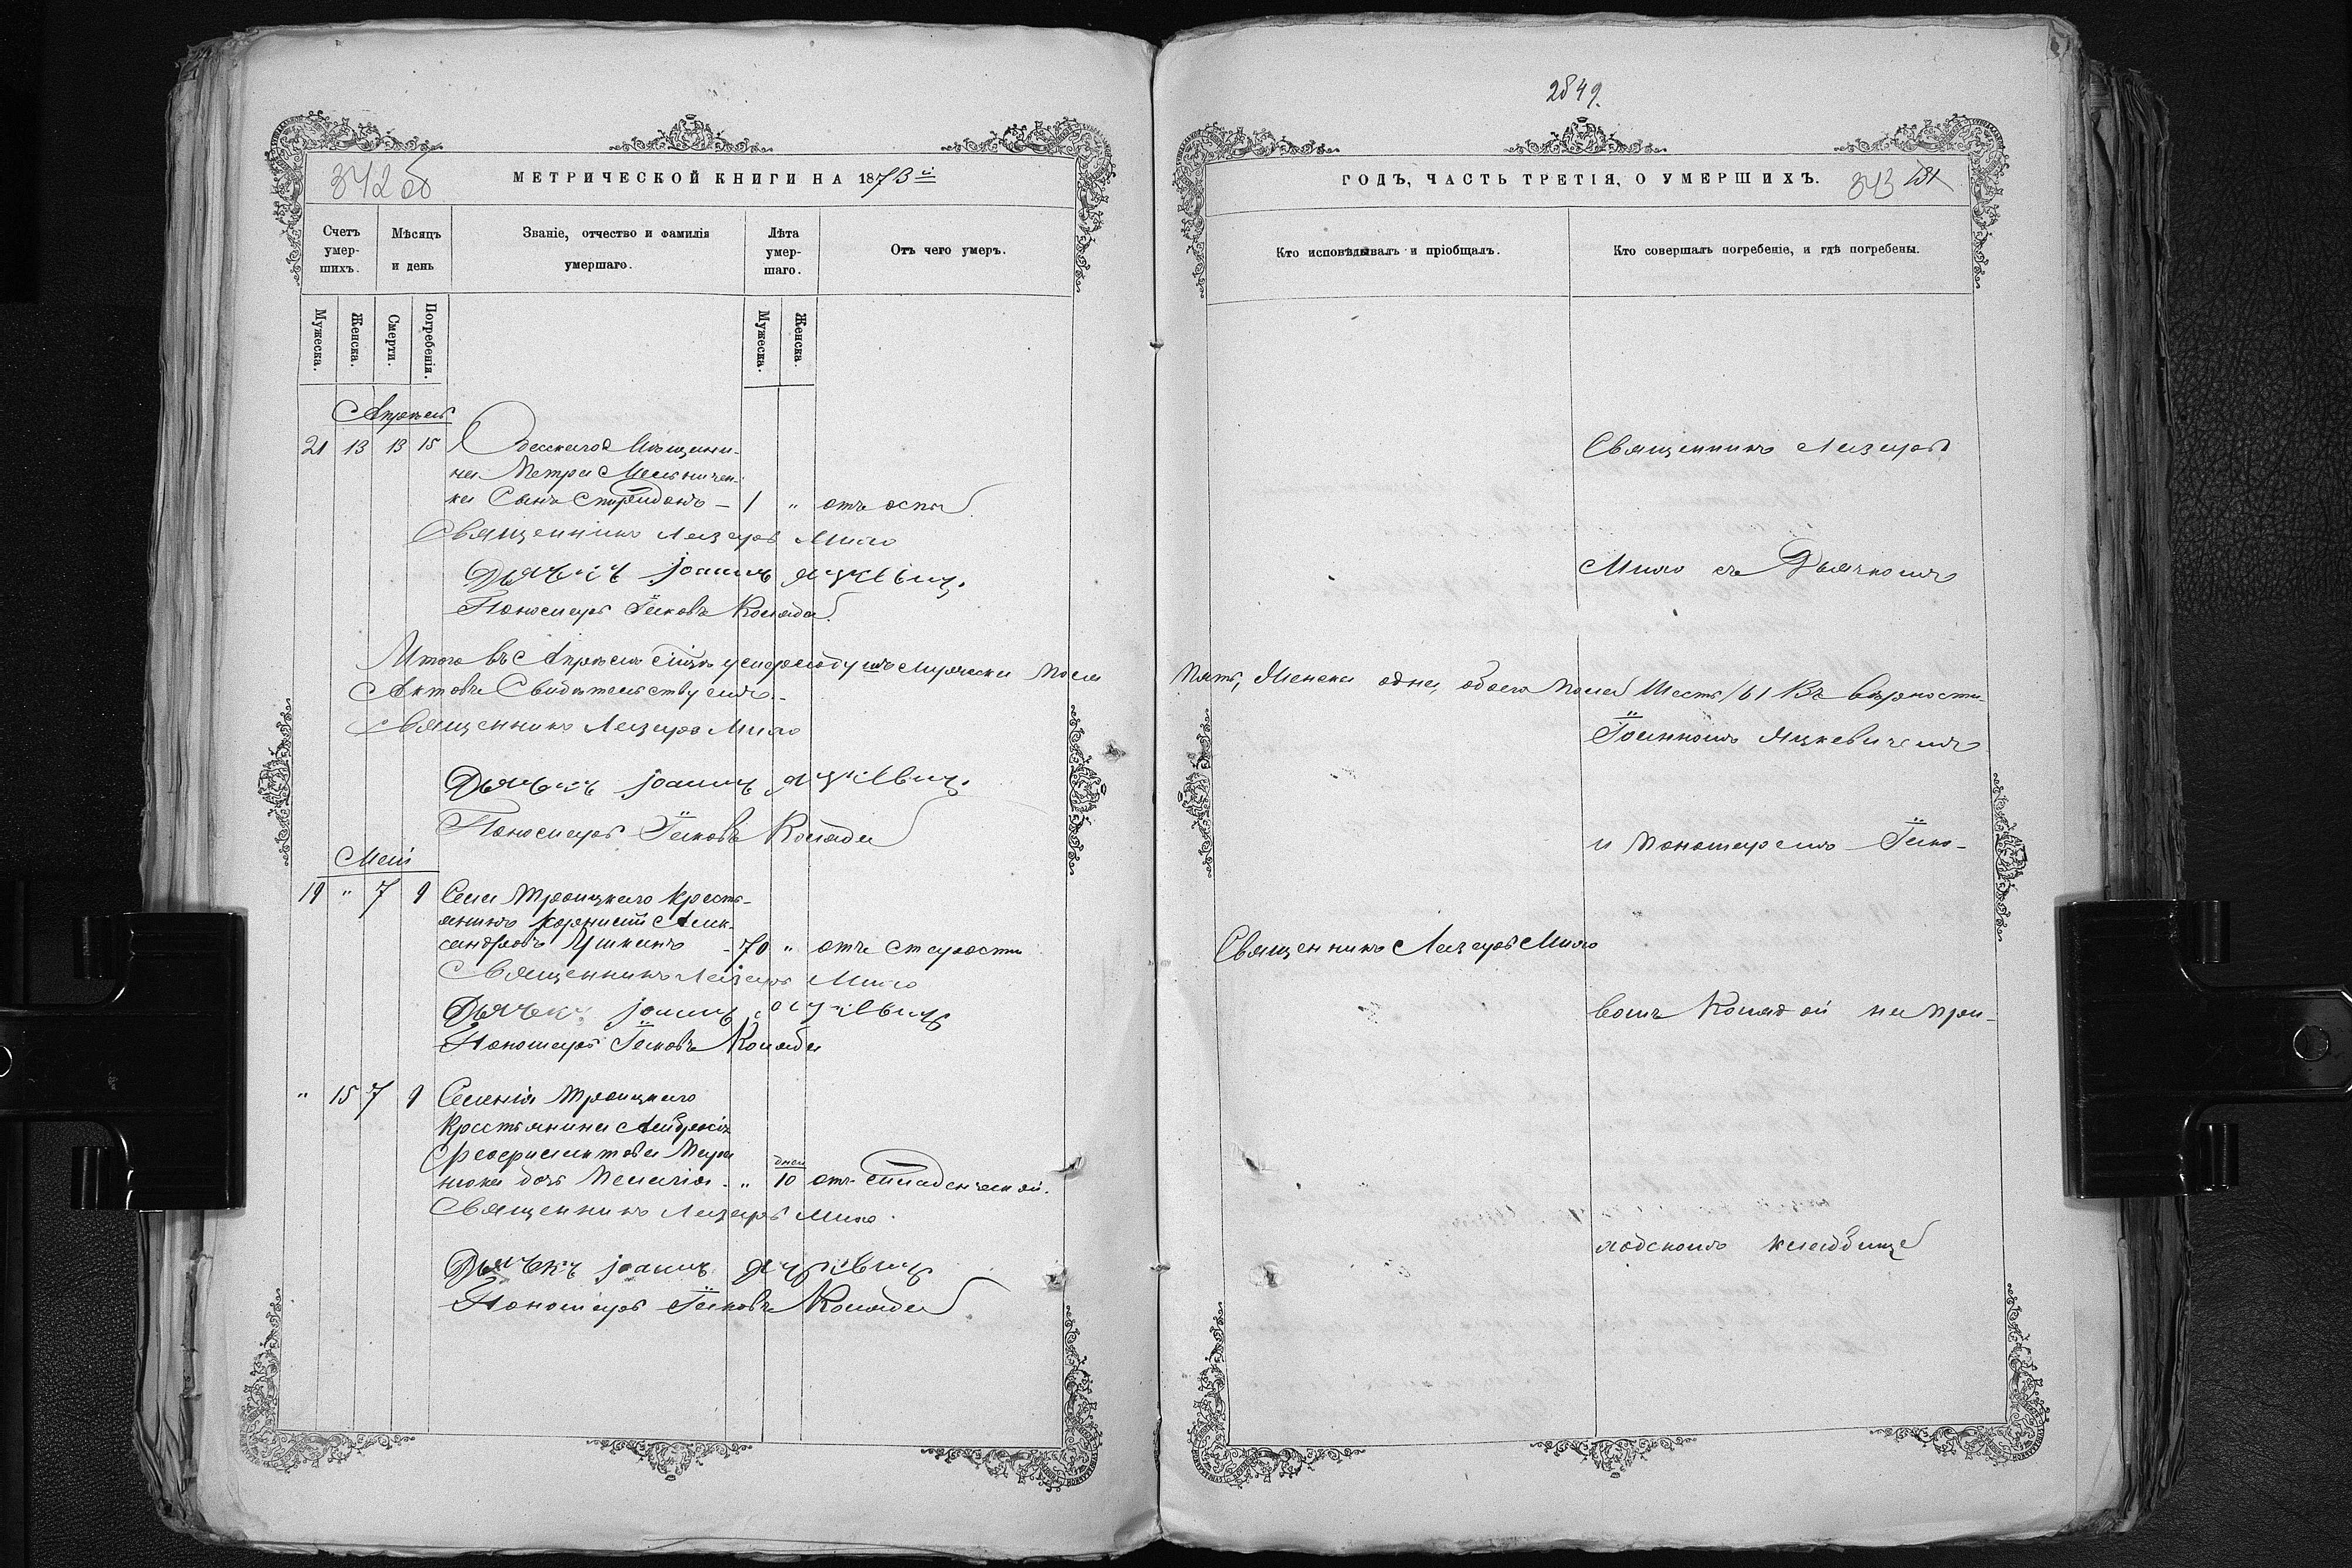 342 об
МЕТРИЧЕСКОЙ КНИГИ НА 1873й
Счетъ умерших.
Мѣсяцъ и день
Званіе, отчество и фамилія умершаго.
Лѣта умершаго.
Отъ чего умеръ.
Мужеска.
Женска.
Смерти.
Погребенія.
Мужеска.
Женска.
Апрѣль
21 13 13 15 Одесскаго Мѣщани-
на Петра Мельничен-
ка Сынъ Спиридонъ — 1 " отъ оспы
Священникъ Лазарь Мило
Дьячекъ Іоаннъ Яцкевичъ.
Пономарь Іаковъ Коляда
Итого въ Апрѣлѣ мцѣ умерло Мужеска пола
Актовъ Свидѣтельствуемъ.
Священникъ Лазарь Мило
Дьячекъ Іоаннъ Яцкевичъ.
Пономарь Іаковъ Коляда
Май
19 " 7 9 Села Троицкаго Кресть-
янинъ Алек-
сандровъ - 70 " отъ старости
Священникъ Лазарь Мило
Дьячекъ Іоаннъ Яцкевичъ
Пономарь Іаковъ Коляда
" 15 7 9 Селенія Троицкаго
Крестьянина
дней
дочь Пелагія - " 10 отъ младенческой.
Священникъ Лазарь Мило.
Дьячекъ Іоаннъ Яцкевичъ
Пономарь Іаковъ Коляда
2849.
ГОДЪ, ЧАСТЬ ТРЕТІЯ, О УМЕРШИХЪ.
343
Кто исповѣдывалъ и пріобщалъ.
Кто совершалъ погребеніе, и гдѣ погребены.
Священникъ Лазарь
Мило съ Дьячкомъ
Пять, Женска одна, обоего пола Шесть /6/ Въ вѣрности
Іоанномъ Яцкевичемъ
и Пономаремъ Іако-
Священникъ Лазарь Мило
вомъ Колядой на при-
ходскомъ кладбищѣ